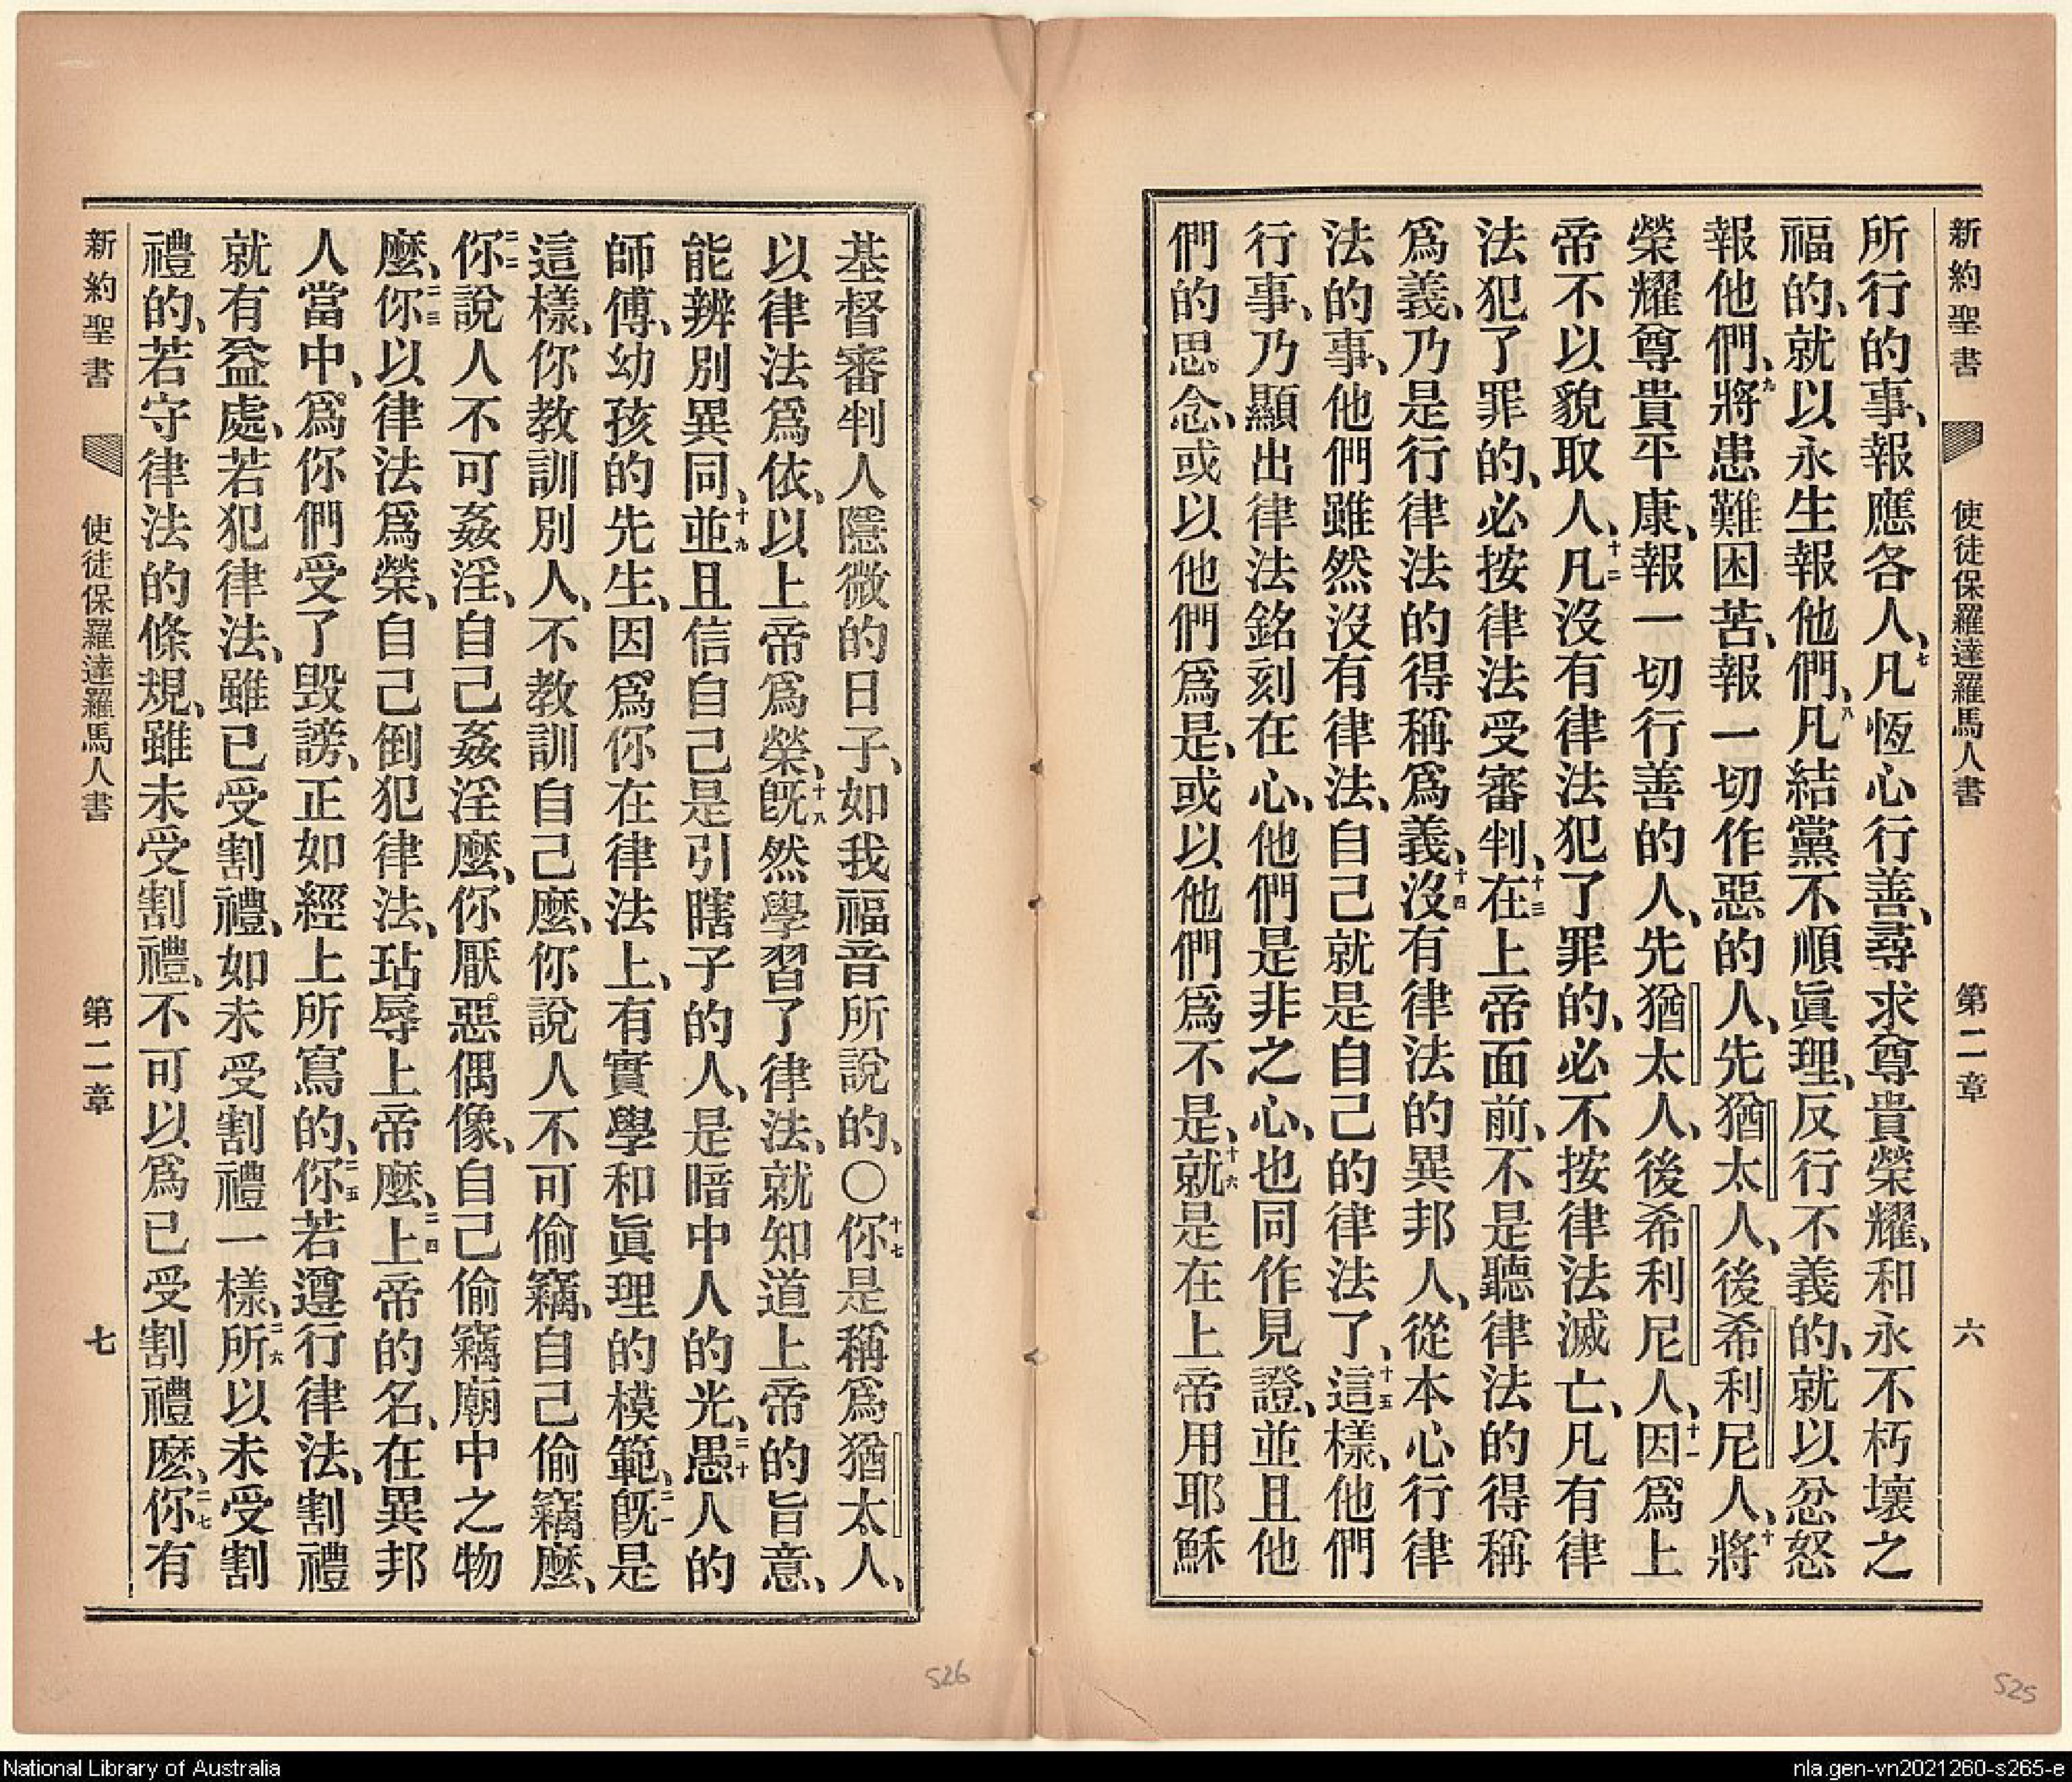 新約聖書 使徒保羅達羅馬人書 第二章 六
所行的事、報應各人、七凡恆心行善、尋求尊貴榮耀、和永不朽壞之
福的、就以永生報他們、八凡結黨不順眞理、反行不義的、就以忿怒
報他們、九將患難困苦、報一切作惡的人、先猶太人、後希利尼人、十將
榮耀尊貴平康、報一切行善的人、先猶太人、後希利尼人、十一因爲上
帝不以貌取人、十二凡沒有律法犯了罪的、必不按律法滅亡、凡有律
法犯了罪的、必按律法受審判、十三在上帝面前、不是聽律法的得稱
爲義、乃是行律法的得稱爲義、十四沒有律法的異邦人、從本心行律
法的事、他們雖然沒有律法、自己就是自己的律法了、十五這樣、他們
行事、乃顯出律法銘刻在心、他們是非之心、也同作見證、並且他
們的思念、或以他們爲是、或以他們爲不是、十六就是在上帝用耶穌
基督審判人隱微的日子、如我福音所說的、〇十七你是稱爲猶太人、
以律法爲依、以上帝爲榮、十八旣然學習了律法、就知道上帝的旨意、
能辨別異同、十九並且信自己是引瞎子的人、是暗中人的光、二十愚人的
師傅、幼孩的先生、因爲你在律法上、有實學和眞理的模範、二一旣是
這樣、你教訓別人、不教訓自己麼、你說人不可偷竊、自己偷竊麼、
二二你說人不可姦淫、自己姦淫麼、你厭惡偶像、自己偷竊廟中之物
麼、二三你以律法爲榮、自己倒犯律法、玷辱上帝麼、二四上帝的名、在異邦
人當中、爲你們受了毀謗、正如經上所寫的、二五你若遵行律法、割禮
就有益處、若犯律法、雖已受割禮、如未受割禮一樣、二六所以未受割
禮的、若守律法的條規、雖未受割禮、不可以爲已受割禮麼、二七你有
新約聖書 使徒保羅達羅馬人書 第二章 七
526
525
National Library of Australia
nla.gen-vn2021260-s265-e